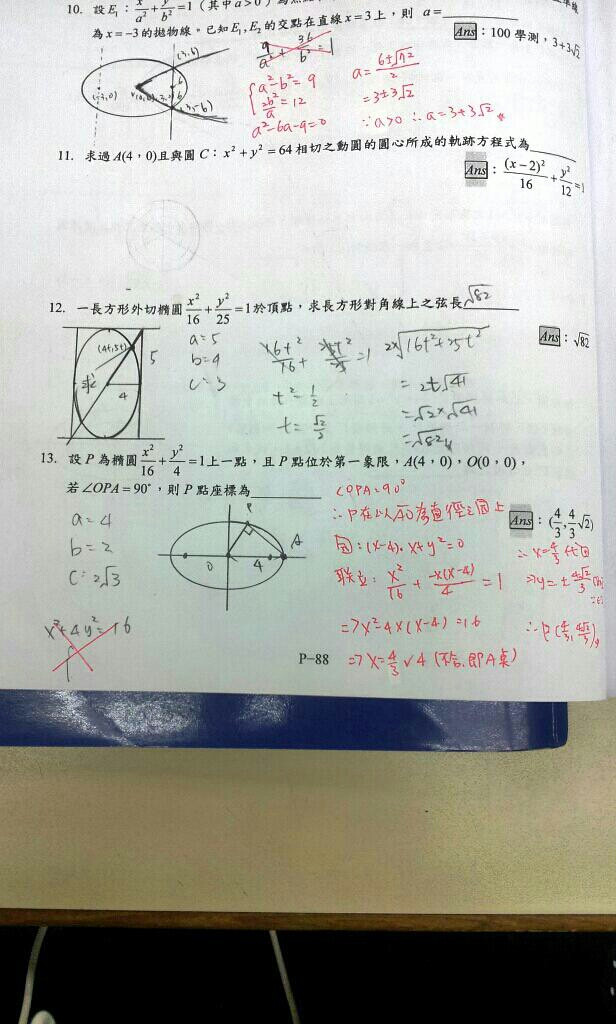 10. 設E₁：x²/a²+y²/b²=1（其中a>0）為
為x=−3的拋物線。已知E₁,E₂的交點在直線x=3上，則 a=
Ans：100學測，3+3√2
9/a²+36/b²=1
a²-b²=9
2b²/a=12
a²-6a-9=0
a=6±√72/2
=3±3√2
∵a>0 ∴a=3+3√2
(3,6)
(-3,0)
6
11. 求過A(4，0)且與圓C：x²+y²=64相切之動圓的圓心所成的軌跡方程式為
Ans：(x−2)²/16+y²/12=1
12. 一長方形外切橢圓x²/16+y²/25=1於頂點，求長方形對角線上之弦長√82
Ans：√82
(4t,5t)
5
求
4
a=5
b=4
c=3
t²=1/2
t=√2/2
2×√16t²+25t²
=2t√41
=√2×√41
=√82
13. 設P為橢圓x²/16+y²/4=1上一點，且P點位於第一象限，A(4，0)，O(0，0)，
若∠OPA=90°，則P點座標為
Ans：(4/3,4/3√2)
a=4
b=2
c=2√3
x²+4y²=16
P
A
0
4
∠OPA=90°
∴P在以AO為直徑之圓上
圓:(x-4)·x+y²=0
聯立: x²/16+-x(x-4)/4=1
=>x²-4x(x-4)=16
=>x=4/3 ∨ 4 (不合,即A點)
∴x=4/3代回
=>y=±4√2/3
∴P(4/3,4√2/3)
P−88